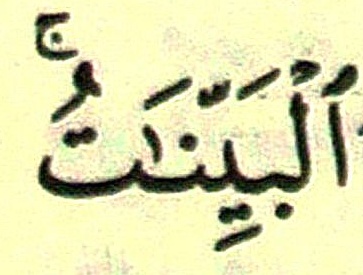 ٱلْبَيِّنَٰتُ ۚ